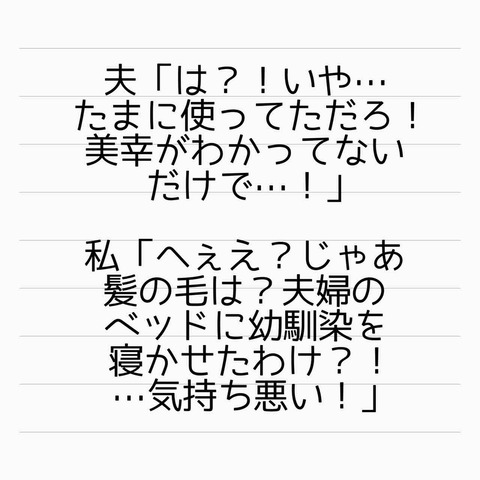 夫「は？！いや…
たまに使ってただろ！
美幸がわかってない
だけで…！」
私「へぇえ？じゃあ
髪の毛は？夫婦の
ベッドに幼馴染を
寝かせたわけ？！
…気持ち悪い！」